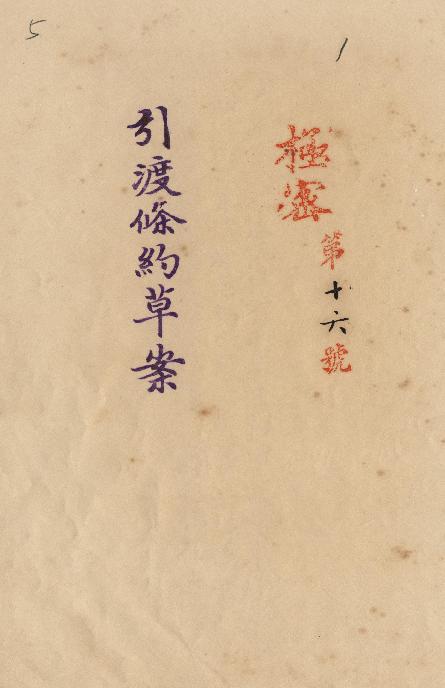 5
1
極密
第十六號
引渡條約草案